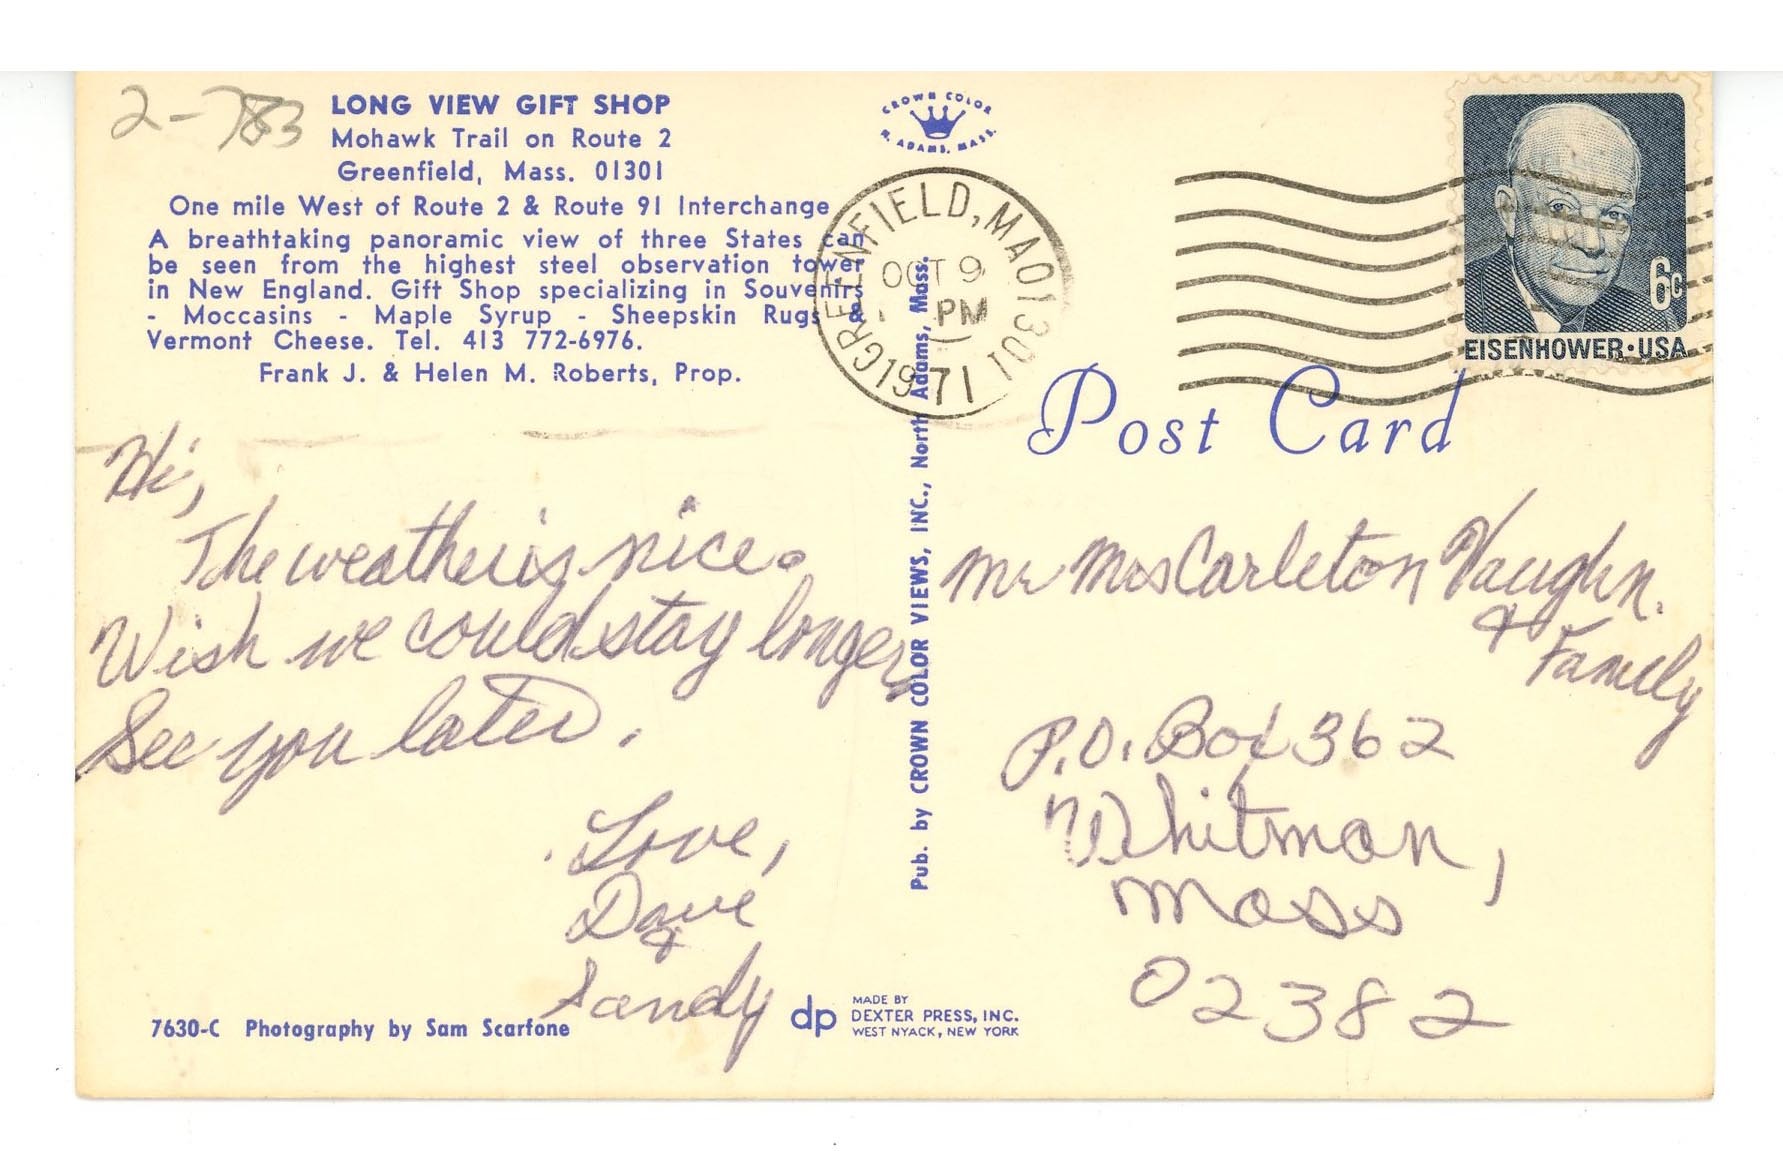 2-783
LONG VIEW GIFT SHOP
Mohawk Trail on Route 2
Greenfield, Mass. 01301
One mile West of Route 2 & Route 91 Interchange
A breathtaking panoramic view of three States can
be seen from the highest steel observation tower
in New England. Gift Shop specializing in Souvenirs
- Moccasins - Maple Syrup - Sheepskin Rugs &
Vermont Cheese. Tel. 413 772-6976.
Frank J. & Helen M. Roberts, Prop.
Hi,
The weather is nice.
Wish we could stay longer,
See you later.
Love,
Dave
&
Sandy
7630-C Photography by Sam Scarfone
CROWN COLOR
N. ADAMS, MASS.
GREENFIELD, MA 01301
OCT 9
PM
1971
Pub. by CROWN COLOR VIEWS, INC., North Adams, Mass.
6c
EISENHOWER·USA
Post Card
Mr Mrs Carleton Vaughn.
& Family
P.O. Box 362
Whitman,
Mass
02382
dp
MADE BY
DEXTER PRESS, INC.
WEST NYACK, NEW YORK